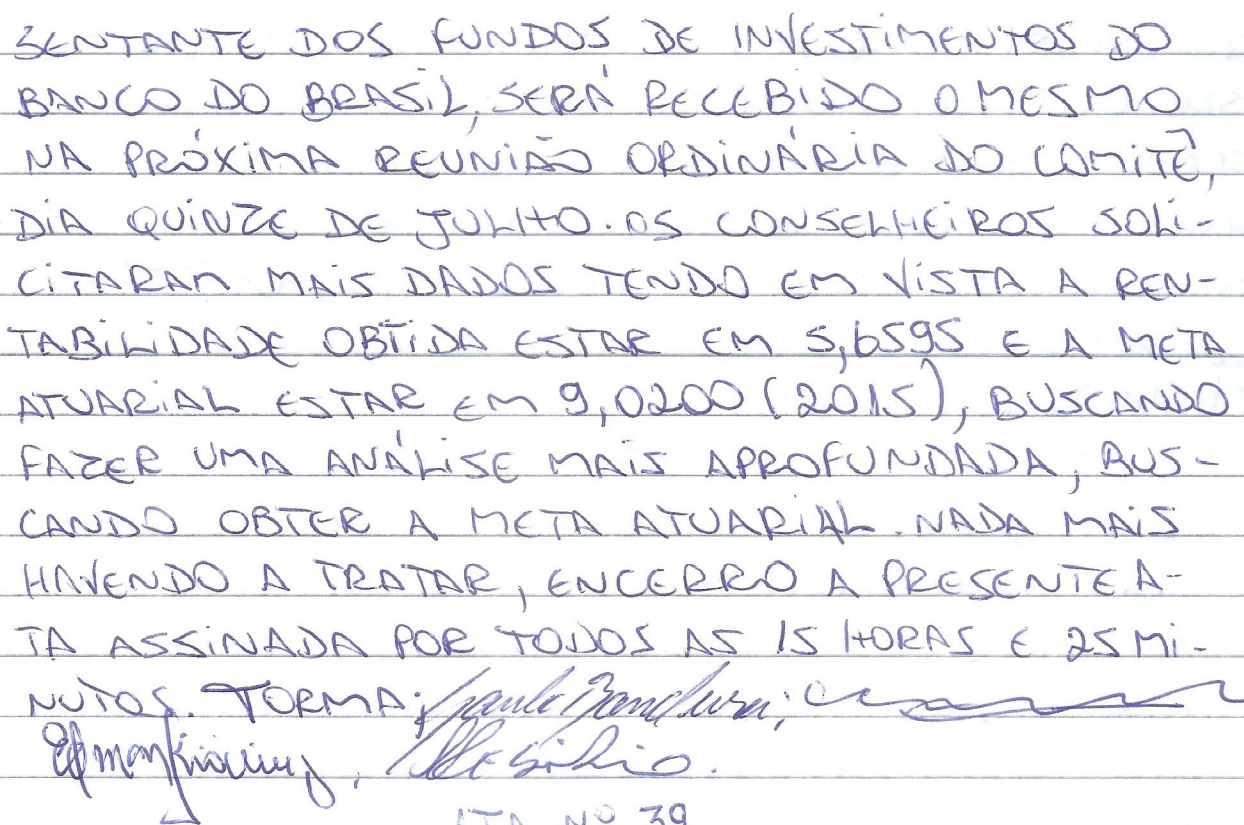 SENTANTE DOS FUNDOS DE INVESTIMENTOS DO
BANCO DO BRASIL, SERÁ RECEBIDO O MESMO
NA PRÓXIMA REUNIÃO ORDINÁRIA DO COMITÊ,
DIA QUINZE DE JULHO. OS CONSELHEIROS SOLI-
CITARAM MAIS DADOS TENDO EM VISTA A REN-
TABILIDADE OBTIDA ESTAR EM 5,6595 E A META
ATUARIAL ESTAR EM 9,0200 (2015), BUSCANDO
FAZER UMA ANÁLISE MAIS APROFUNDADA, BUS-
CANDO OBTER A META ATUARIAL. NADA MAIS
HAVENDO A TRATAR, ENCERRO A PRESENTE A-
TA ASSINADA POR TODOS AS 15 HORAS E 25 MI-
NUTOS. TORMA;
ATA Nº 39